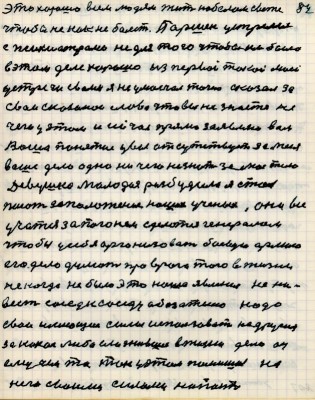 Это хорошо всем людям жить на белом свете 84
чтобы не как не болеть. Паршек
с психиатрами не для того чтобы им было
в этом деле хорошо из первой такой моей
встречи своей я не умолчал точно сказал за
свои сказанное слово что вы не знаете не
чего у этом и сейчас прямо заявляю вам
Ваша понятия цвел отсутствует за меня
ваше дело одно ни чего незнать за мое тело
Девушка молодая разбудила я стал
писать за положения наших ученых, они все
учатся за погоном сделатся генералом
чтобы у себя организовать боевую армию
его дело думать про врага того в жизни
не когда не было это наша явления не на-
весть соседу соседу обязательно надо
свои имеющие силы использовать на друзей
за какое либо сложившие в жизни дело от
случия та
него своими силами напасть